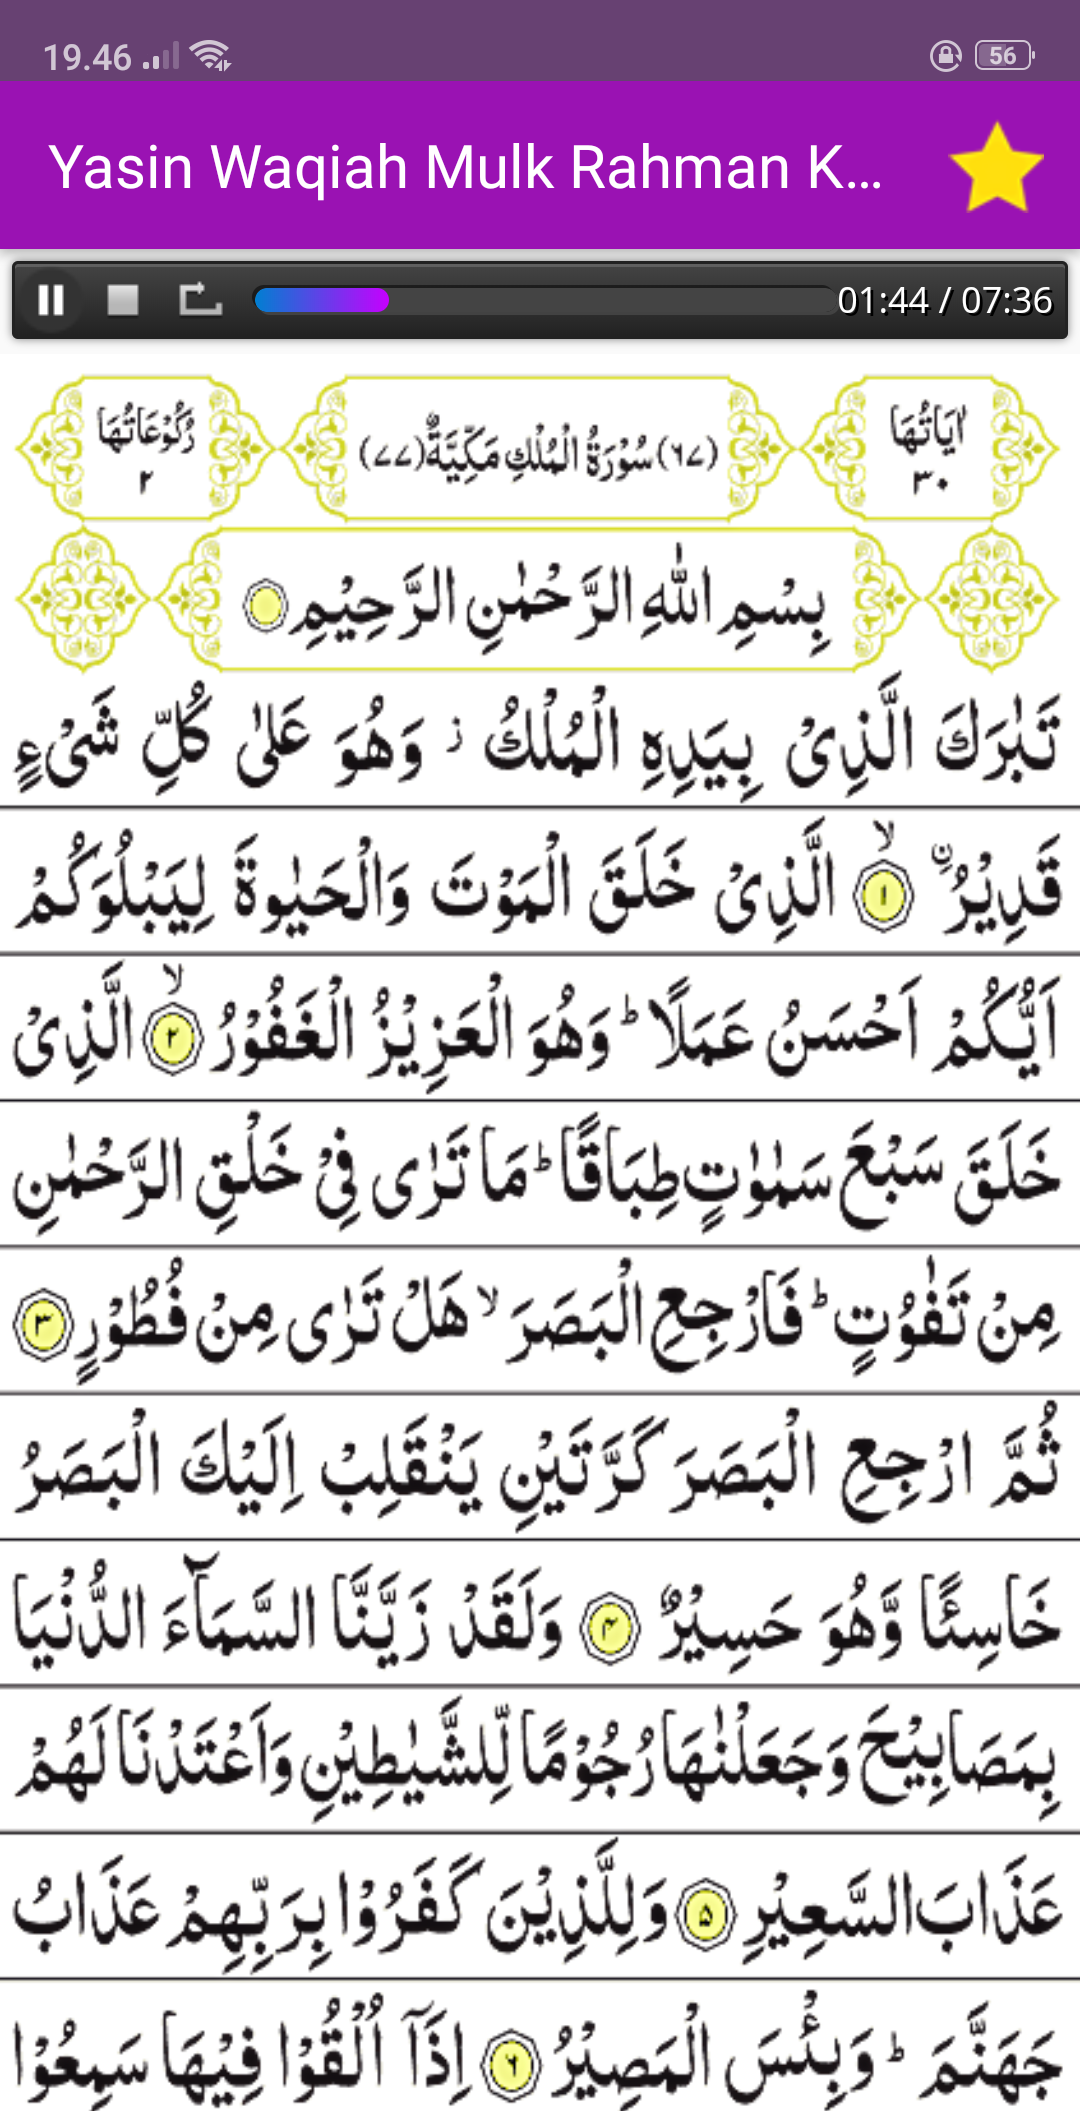 19.46
56
Yasin Waqiah Mulk Rahman K...
01:44 / 07:36
اٰيَاتُهَا ٣٠
(٦٧) سُوْرَةُ الْمُلْكِ مَكِّيَّةٌ (٧٧)
رُكُوْعَاتُهَا ٢
بِسْمِ اللّٰهِ الرَّحْمٰنِ الرَّحِيْمِ
تَبٰرَكَ الَّذِىْ بِيَدِهِ الْمُلْكُ ز وَهُوَ عَلٰى كُلِّ شَىْءٍ
قَدِيْرُ ۨ ۙ ﴿۱﴾ الَّذِىْ خَلَقَ الْمَوْتَ وَالْحَيٰوةَ لِيَبْلُوَكُمْ
اَيُّكُمْ اَحْسَنُ عَمَلًا ؕ وَهُوَ الْعَزِيْزُ الْغَفُوْرُ ۙ ﴿۲﴾ الَّذِىْ
خَلَقَ سَبْعَ سَمٰوٰتٍ طِبَاقًا ؕ مَا تَرٰى فِىْ خَلْقِ الرَّحْمٰنِ
مِنْ تَفٰوُتٍ ؕ فَارْجِعِ الْبَصَرَ ۙ هَلْ تَرٰى مِنْ فُطُوْرٍ ﴿۳﴾
ثُمَّ ارْجِعِ الْبَصَرَ كَرَّتَيْنِ يَنْقَلِبْ اِلَيْكَ الْبَصَرُ
خَاسِئًا وَّهُوَ حَسِيْرٌ ﴿۴﴾ وَلَقَدْ زَيَّنَّا السَّمَآءَ الدُّنْيَا
بِمَصَابِيْحَ وَجَعَلْنٰهَا رُجُوْمًا لِّلشَّيٰطِيْنِ وَاَعْتَدْنَا لَهُمْ
عَذَابَ السَّعِيْرِ ﴿۵﴾ وَلِلَّذِيْنَ كَفَرُوْا بِرَبِّهِمْ عَذَابُ
جَهَنَّمَ ؕ وَبِئْسَ الْمَصِيْرُ ﴿۶﴾ اِذَآ اُلْقُوْا فِيْهَا سَمِعُوْا